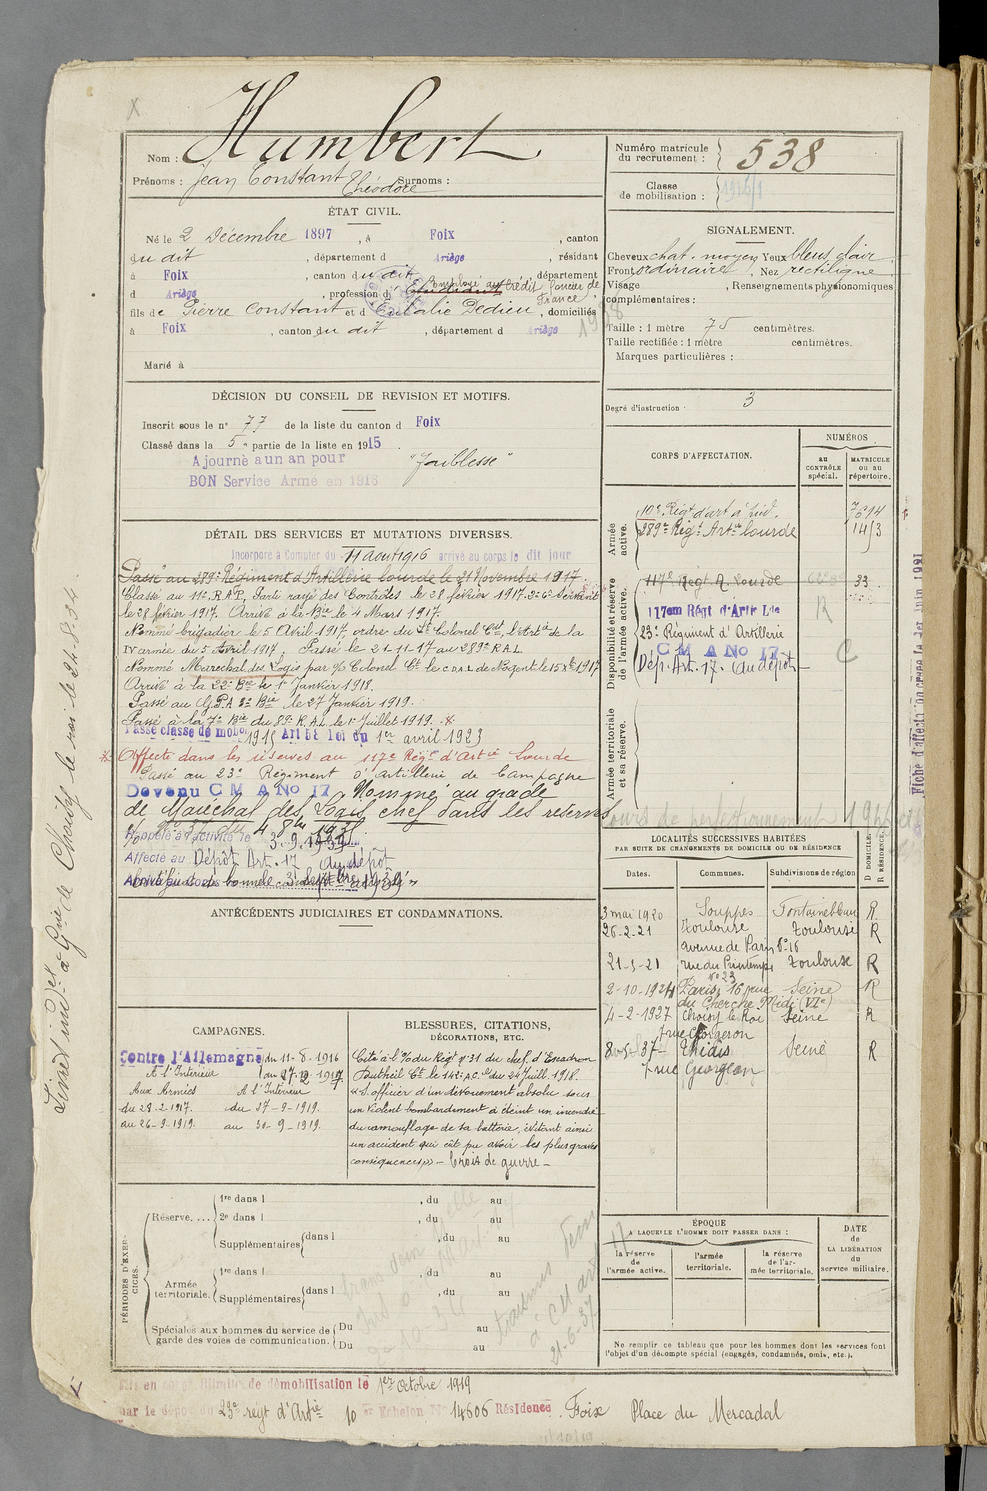 Nom : Humbert
Prénoms : Jean Constant Théodore Surnoms :
ÉTAT CIVIL.
Né le 2 Décembre 1897, à Foix, canton
du dit, département d Ariège, résidant
à Foix, canton du dit, département
d Ariège, profession d'Etudiant employé au Crédit foncier de
France
fils de Pierre Constant et d'Eulalie Dedieu, domiciliés
à Foix, canton du dit, département d Ariège
1918
Marié à
DÉCISION DU CONSEIL DE REVISION ET MOTIFS.
Inscrit sous le n° 77 de la liste du canton d Foix
Classé dans la 5e partie de la liste en 1915.
Ajourné a un an pour "faiblesse"
BON Service Armé en 1916
DÉTAIL DES SERVICES ET MUTATIONS DIVERSES.
Incorporé à Compter du 11 Aout 1916 arrivé au corps le dit jour
Passé au 289e Régiment d'Artillerie lourde le 21 Novembre 1917.
Classé au 11e R.A.P. Parti rayé des Contrôles le 28 février 1917.
le 28 février 1917. Arrivé à la Bie le 4 Mars 1917.
Nommé brigadier le 5 Avril 1917, ordre du Lt Colonel Ct l'Artie de la
IV armée du 5 Avril 1917. Passé le 21-11-17 au 289e R.A.L.
Nommé Maréchal des Logis par % Colonel Ct le C.D.A.L. de Nogent le 15 1917
Arrivé à la 22e Bie le 1er Janvier 1918.
Passé au G.P.A 3e Bie le 27 Janvier 1919.
Passé à la 7e Bie du 89e R.A.L le 1er Juillet 1919. *
Passé classe de mobon 1915 Art 58 Loi du 1er avril 1923
* Affecté dans les réserves au 117e Régt d'Artie Lourde
Passé au 23e Régiment d'artillerie de Campagne
Devenu C M A No 17 Nommé au grade
de Maréchal des Logis chef dans les réserves
Rappelé à l'activité le 3.9.1939
Affecté au Dépôt Art. 17 au dépôt
ANTÉCÉDENTS JUDICIAIRES ET CONDAMNATIONS.
CAMPAGNES.
Contre l'Allemagne du 11-8-1916
au 27-2-1917
A l'Intérieur
Aux Armées A l'Intérieur
du 28-2-1917. du 27-9-1919.
au 26-9-1919. au 30-9-1919.
BLESSURES, CITATIONS,
DÉCORATIONS, ETC.
Cité à l'% du Régt n° 31 du chef d'Escadron
Dutheil Ct le 142e A.C.L du 24 Juill. 1918.
« S. officier d'un dévouement absolu sous
un violent bombardement a éteint un incendie
du camouflage de sa batterie, évitant ainsi
un accident qui eût pu avoir les plus graves
conséquences » – Croix de guerre –
PÉRIODES D'EXERCICES.
Réserve. ... 1re dans l , du au
2e dans l , du au
Supplémentaires dans l , du au
Armée territoriale. 1re dans l , du au
Supplémentaires dans l , du au
Spéciales aux hommes du service de garde des voies de communication. Du au
Du au
transmis
à CM art
21-6-37
Numéro matricule du recrutement : 538
Classe de mobilisation : 1916/1
SIGNALEMENT.
Cheveux chat. moyen Yeux bleus clair
Front ordinaire, Nez rectiligne
Visage , Renseignements physionomiques
complémentaires :
Taille : 1 mètre 75 centimètres.
Taille rectifiée : 1 mètre centimètres.
Marques particulières :
Degré d'instruction : 3
CORPS D'AFFECTATION.
NUMÉROS
au CONTRÔLE spécial.
MATRICULE ou au répertoire.
Armée active.
10e Régt d'art à pied. 7614
289e Régt Artie lourde 1413
Disponibilité et réserve de l'armée active.
117e Regt A. Lourde 33
117em Régt d'Artie Lde R
23e Régiment d'Artillerie
C M A No 17 C
Dép. Art. 17. au dépôt
Armée territoriale et sa réserve.
Cours de perfectionnement
LOCALITÉS SUCCESSIVES HABITÉES
PAR SUITE DE CHANGEMENTS DE DOMICILE OU DE RÉSIDENCE
Dates. Communes. Subdivisions de région D DOMICILE. R RÉSIDENCE.
3 mai 1920 Souppes Fontainebleau R
26-2-21 Toulouse Toulouse R
avenue de Paris n° 16
21-5-21 rue du Printemps Toulouse R
N° 23
2-10-1924 Paris, 16 rue Seine R
du Cherche Midi (VIe)
4-2-1927 Choisy le Roi Seine R
7 rue Georgeon
8-5-37 Thiais Seine R
7 rue Georgeon
ÉPOQUE
A LAQUELLE L'HOMME DOIT PASSER DANS :
la réserve de l'armée active.
l'armée territoriale.
la réserve de l'armée territoriale.
DATE
de
LA LIBÉRATION
du
service militaire.
Ne remplir ce tableau que pour les hommes dont les services font
l'objet d'un décompte spécial (engagés, condamnés, omis, etc.).
Fiche d'affectation créée le 1er Juin 1921
de Choisy le roi le 24.8.34
Mis en congé illimité de démobilisation le 1er Octobre 1919
par le dépôt du 23e régt d'Artie 10 er Echelon N° 14606 Résidence Foix Place du Mercadal